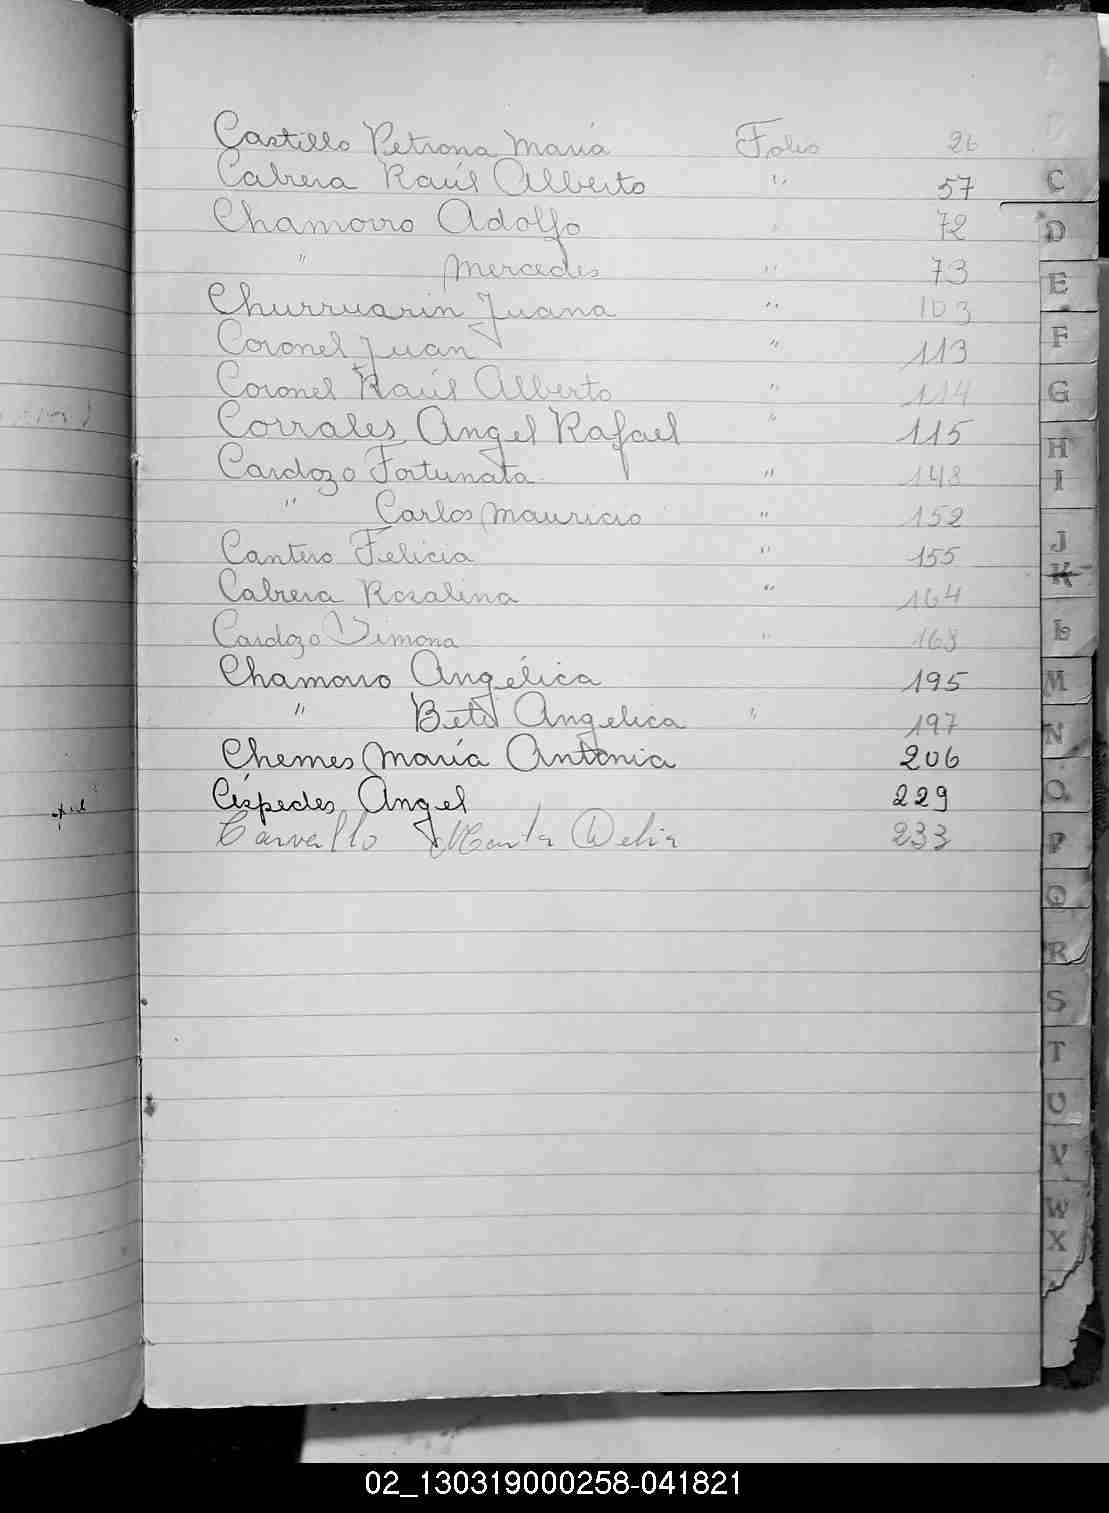 Castillo Petrona María Folio 26
Cabrera Raúl Alberto " 57
Chamorro Adolfo " 72
" Mercedes " 73
Churruarin Juana " 103
Coronel Juan " 113
Coronel Raúl Alberto " 114
Corrales Angel Rafael " 115
Cardozo Fortunata " 148
" Carlos Mauricio " 152
Cantero Felicia " 155
Cabrera Rosalina " 164
Cardozo Simona " 168
Chamorro Angélica 195
" Angelica " 197
Chemes María Antonia 206
Céspedes Angel 229
Carvallo Marta Delia 233
C
D
E
F
G
H
I
J
K
L
M
N
O
P
Q
R
S
T
U
V
W
X
02_130319000258-041821